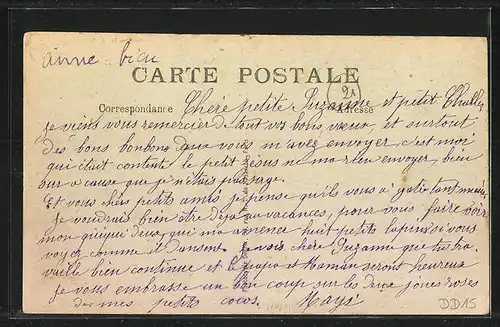 anne bien
CARTE POSTALE
Correspondance Adresse
21
Chere petite Suzanne et petit Charles
je viens vous remercier de tout vos bons vœux, et surtout
des bons bonbons que vous m'avez envoyer, c'est moi
qui était contente le petit Jesus ne ma rien envoyer, bien
sur a cause que je n'étais pas sage.
Et vous chers petits amis je pense qu'ils vous a gater
Je voudrais bien être déja au vacances, pour vous faire voir
mon qui ma huit petits lapins si vous
voyez comme il dansent. Je vois chere Suzanne que tu tra
vaille bien continue et le papa et Maman seront heureux
Je vous embrasse un bon coup sur les deux joues roses
de mes petits cocos. Mays
DD15